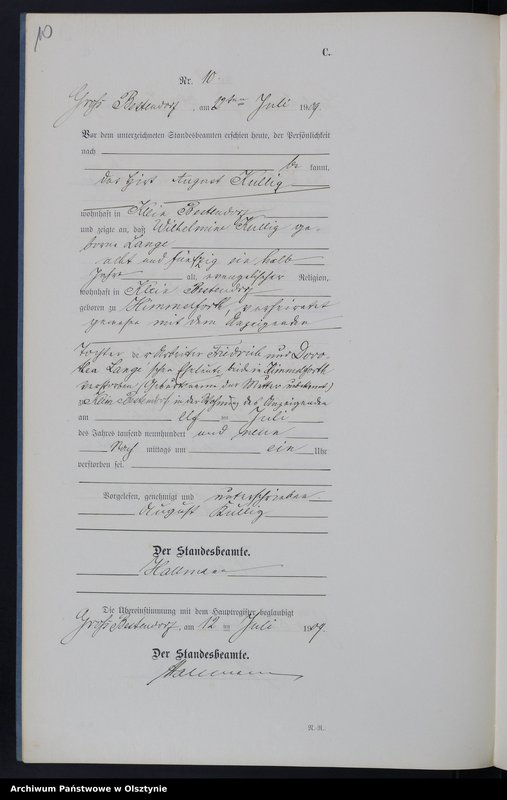 10
C.
Nr. 10.
Groß Bestendorf, am 12ten Juli 1909.
Vor dem unterzeichneten Standesbeamten erschien heute, der Persönlichkeit
nach
kannt,
der Hirt August Kullig
wohnhaft in Klein Bestendorf
und zeigte an, daß Wilhelmine Kullig ge-
borene Lange
acht und fünfzig ein halb
Jahre alt, evangelischer Religion,
wohnhaft in Klein Bestendorf
geboren zu Himmelforth, verheiratet
gewesen mit dem Anzeigenden
Tochter der Arbeiter Friedrich und Doro-
thea Lange schen Eheleute, beide in Himmelforth
verstorben (Geburtsname der Mutter unbekannt)
zu Klein Bestendorf in der Wohnung des Anzeigenden
am Elf ten Juli
des Jahres tausend neunhundert und neun
Nach mittags um ein Uhr
verstorben sei.
Vorgelesen, genehmigt und unterschrieben
August Kullig
Der Standesbeamte.
Hallmann
Die Übereinstimmung mit dem Hauptregister beglaubigt
Groß Bestendorf, am 12 ten Juli 1909.
Der Standesbeamte.
Hallmann
N.-R.
Archiwum Państwowe w Olsztynie